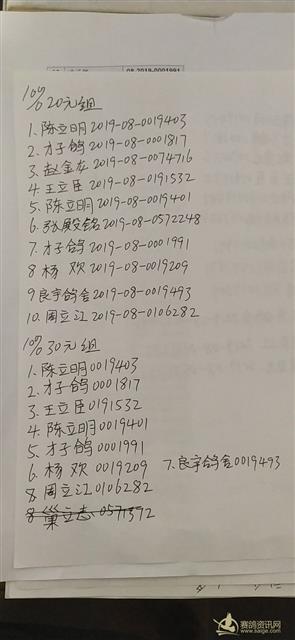 08-2019-0001991
10% 20元组
1.陈立明2019-08-0019403
2.才子鸽2019-08-0001817
3.赵金龙2019-08-0074716
4王立臣2019-08-0191532
5.陈立明2019-08-0019401
6.张殿铭2019-08-0572248
7.才子鸽2019-08-0001991
8杨 欢2019-08-0019209
9良宇鸽舍2019-08-0019493
10.周立江2019-08-0106282
10% 30元组
1.陈立明0019403
2.才子鸽0001817
3.王立臣0191532
4.陈立明0019401
5.才子鸽0001991
6.杨 欢0019209 7.良宇鸽舍0019493
8.周立江0106282
赛鸽资讯网
www.saige.com